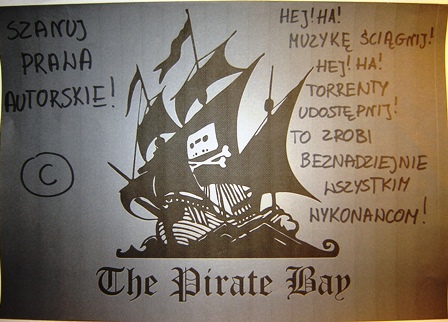 SZANUJ
PRAWA
AUTORSKIE!
©
HEJ! HA!
MUZYKĘ ŚCIĄGNIJ!
HEJ! HA!
TORRENTY
UDOSTĘPNIJ!
TO ZROBI
BEZNADZIEJNIE
WSZYSTKIM
WYKONAWCOM!
The Pirate Bay